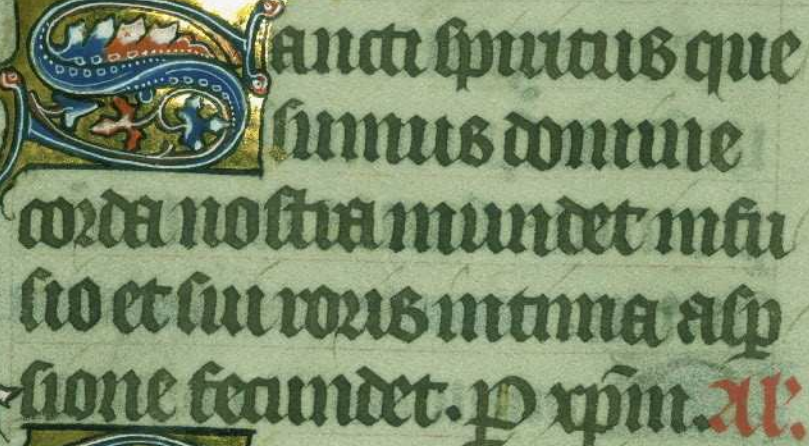 Sancti spiritus que
sumus domine
corda nostra mundet infu
sio et sui roris intima asp
sione fecundet. P xp̄m. Al'.